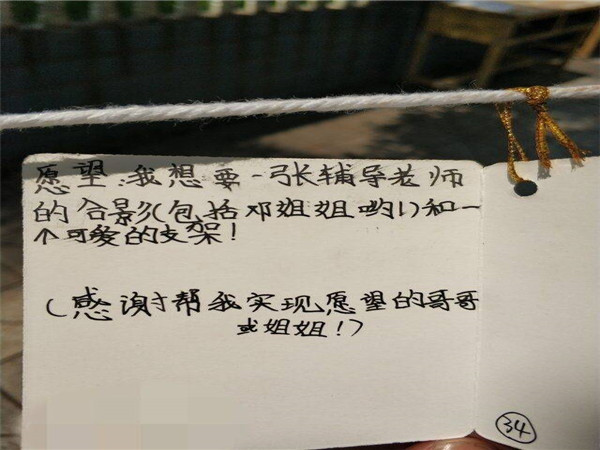 愿望:我想要一张辅导老师
的合影(包括邓姐姐哟!)和一
个可爱的支架!
(感谢帮我实现愿望的哥哥
或姐姐!)
34